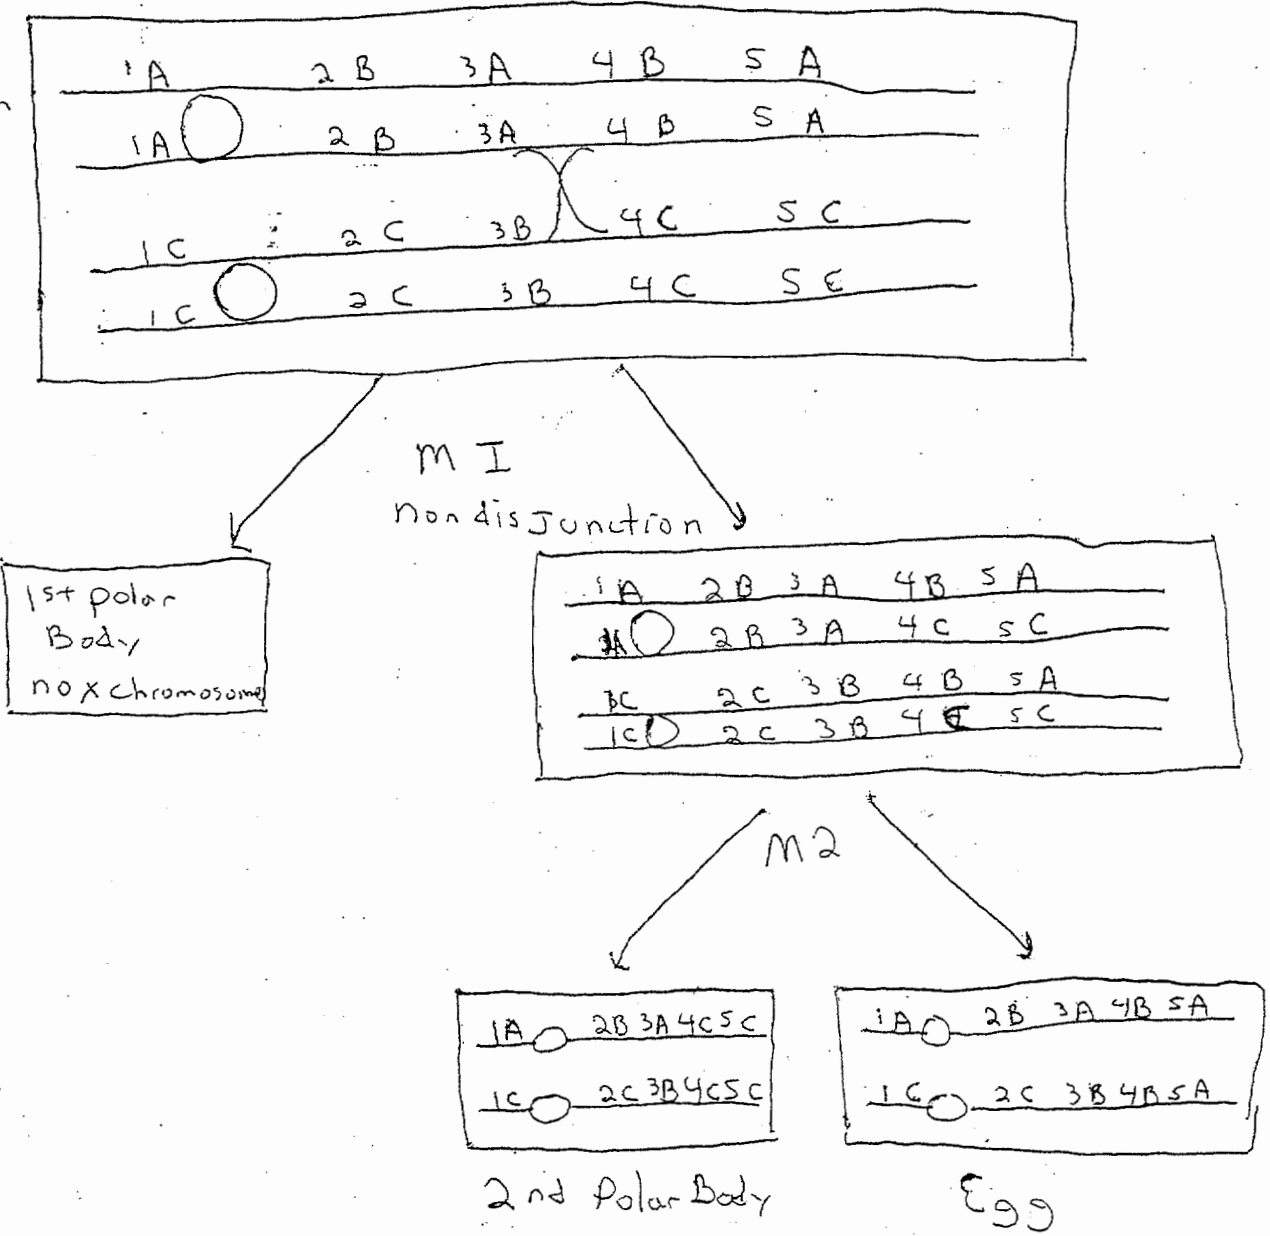 1A 2B 3A 4B 5A
1A 2B 3A 4B 5A
1C 2C 3B 4C 5C
1C 2C 3B 4C 5C
M I
nondisjunction
1st polar
Body
no x chromosomes
1A 2B 3A 4B 5A
1A 2B 3A 4C 5C
1C 2C 3B 4B 5A
1C 2C 3B 4C 5C
M2
1A 2B 3A 4C 5C
1C 2C 3B 4C 5C
2nd Polar Body
1A 2B 3A 4B 5A
1C 2C 3B 4B 5A
Egg